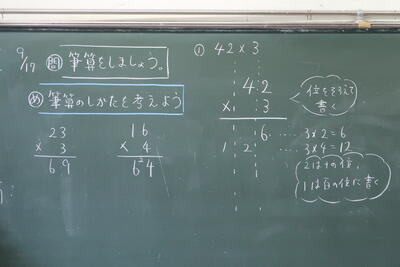 9/17
問 筆算をしましょう。
め 筆算のしかたを考えよう
23
× 3
69
16
× 4
6²4
① 42×3
42
× 3
6
1 2
位をそろえて
書く
3×2=6
3×4=12
2は十の位、
1は百の位に書く